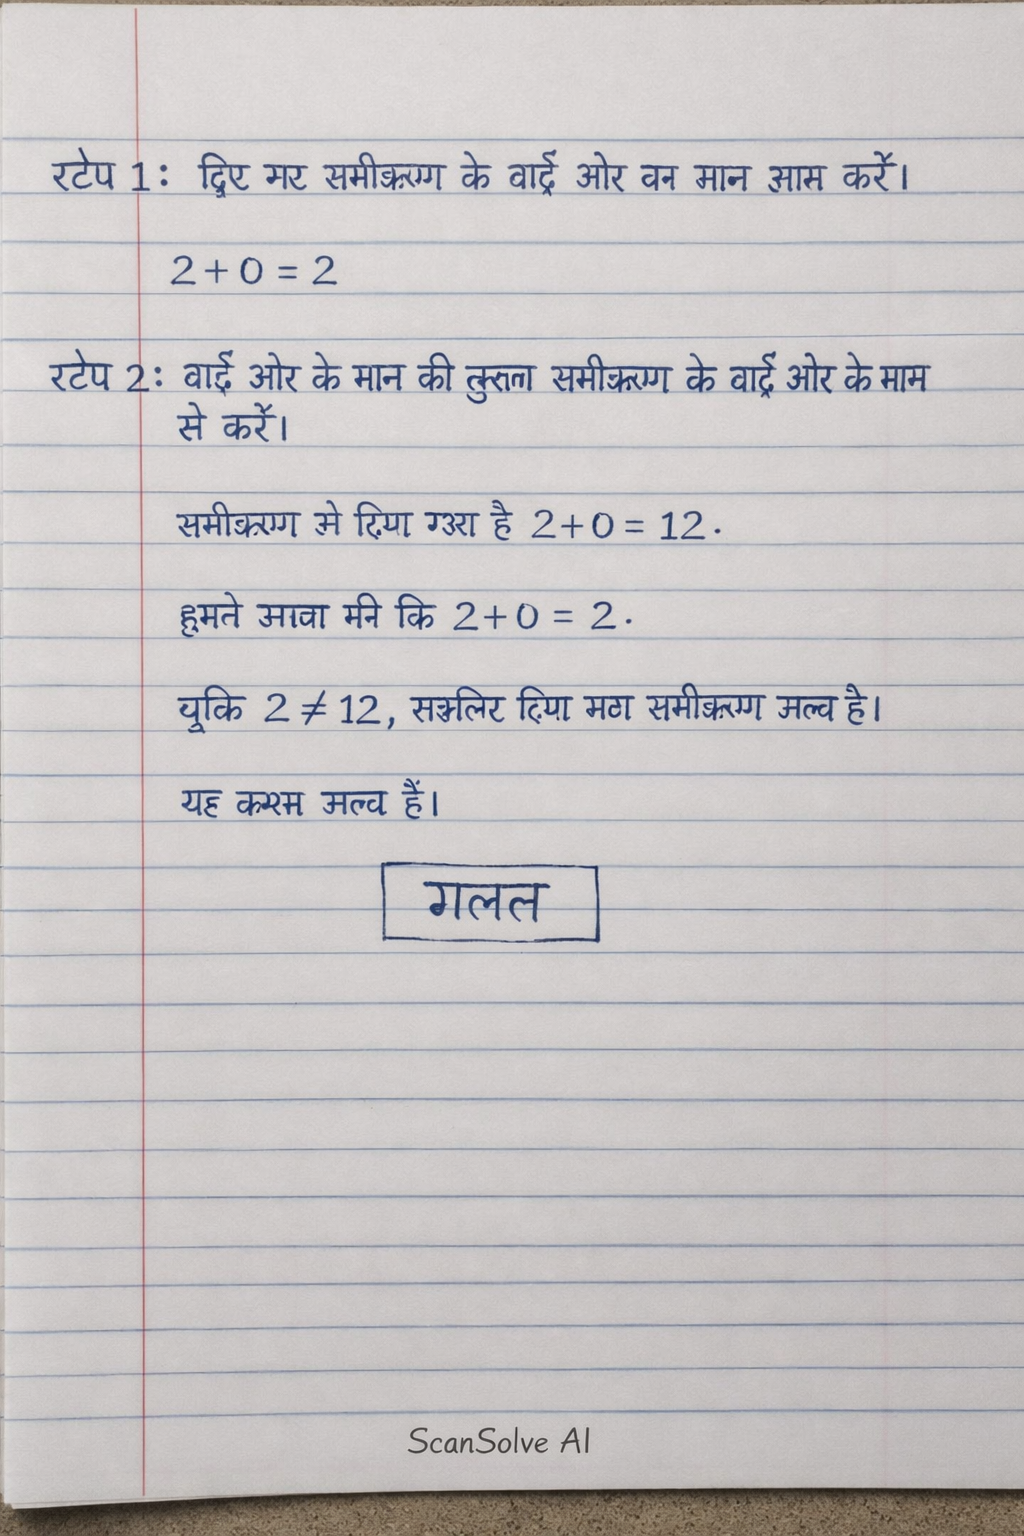 रटेप 1: द्विए मर समीकरण के वाई ओर वन मान आम करें।
2+0 = 2
रटेप 2: वाई ओर के मान की समीकरण के वाई ओर के माम
से करें।
समीकरण मे दिया है 2+0 = 12.
हूमते आवा मने कि 2+0 = 2.
चूकि 2 ≠ 12, दिया मठा समीकरण मल्व है।
यह करम मल्व हैं।
गलत
ScanSolve AI